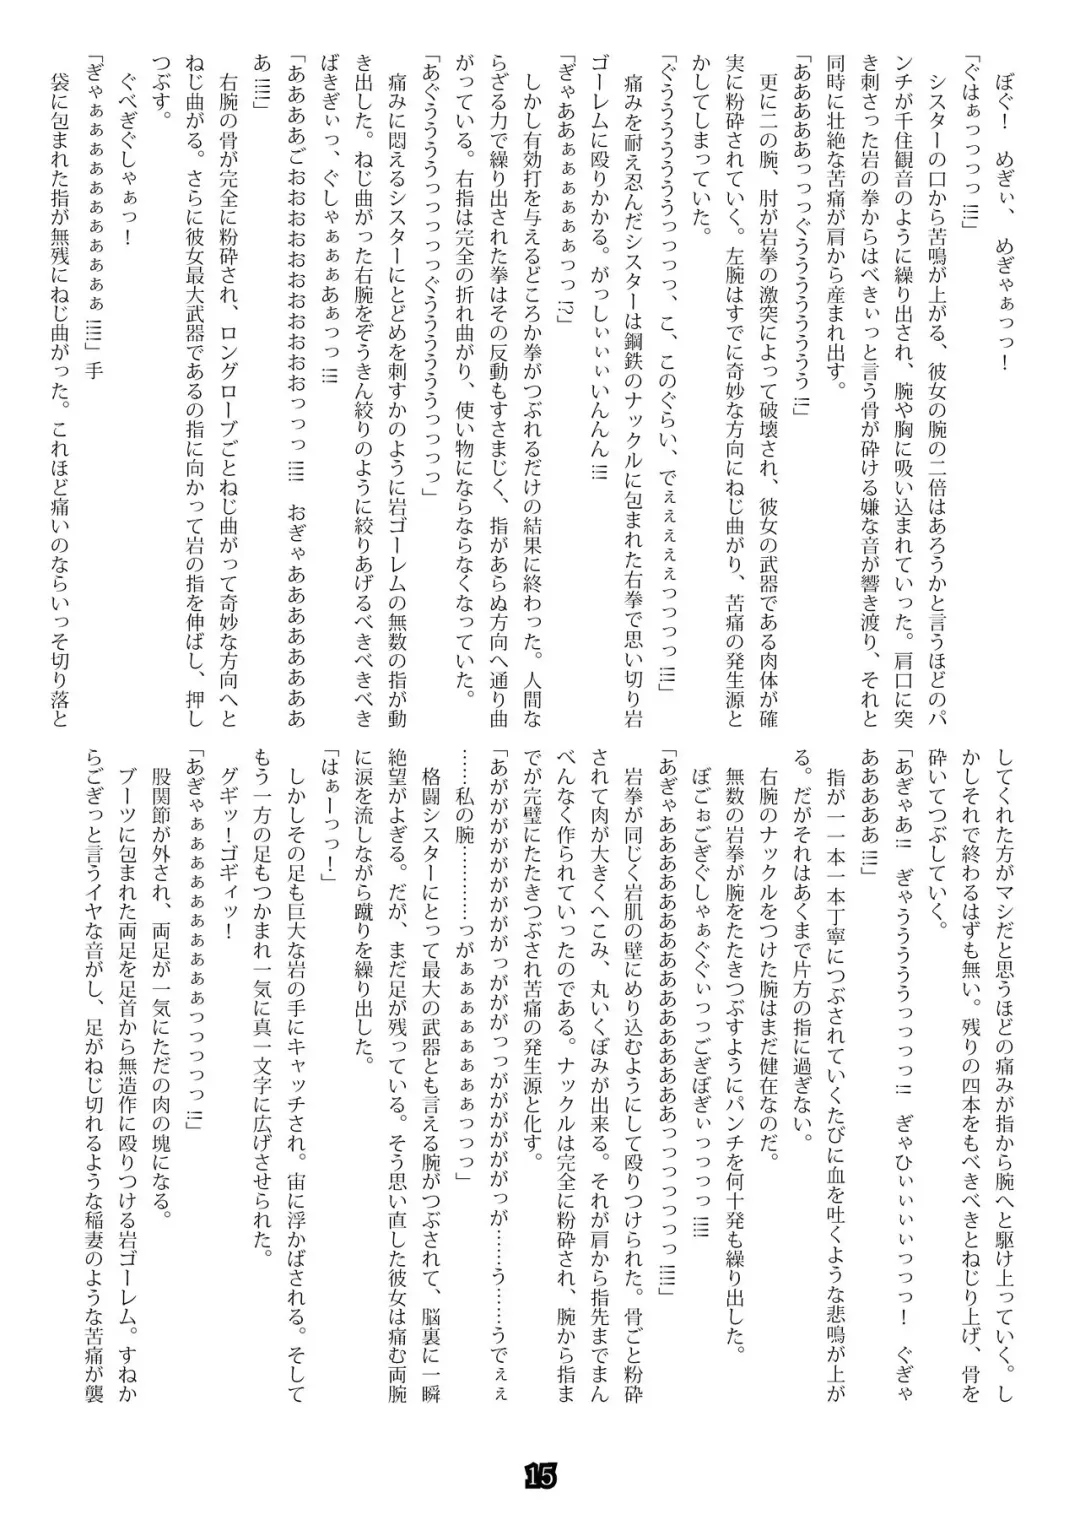 ぼぐ!　めぎぃ、　めぎゃぁっっ!
「ぐはぁっっっっ!!!」
シスターの口から苦鳴が上がる、彼女の腕の二倍はあろうかと言うほどのパ
ンチが千住観音のように繰り出され、腕や胸に吸い込まれていった。肩口に突
き刺さった岩の拳からはべきぃっと言う骨が砕ける嫌な音が響き渡り、それと
同時に壮絶な苦痛が肩から産まれ出す。
「ああああああっっっぐうううううううう!!」
更に二の腕、肘が岩拳の激突によって破壊され、彼女の武器である肉体が確
実に粉砕されていく。左腕はすでに奇妙な方向にねじ曲がり、苦痛の発生源と
かしてしまっていた。
「ぐううううううっっっっ、こ、このぐらい、でぇぇぇぇぇっっっっ!!!」
痛みを耐え忍んだシスターは鋼鉄のナックルに包まれた右拳で思い切り岩
ゴーレムに殴りかかる。がっしぃぃぃいんんん!!!
「ぎゃああぁぁぁぁぁぁっっ!?」
しかし有効打を与えるどころか拳がつぶれるだけの結果に終わった。人間な
らざる力で繰り出された拳はその反動もすさまじく、指があらぬ方向へ通り曲
がっている。右指は完全の折れ曲がり、使い物にならならなくなっていた。
「あぐううううっっっっっぐううううううっっっっ」
痛みに悶えるシスターにとどめを刺すかのように岩ゴーレムの無数の指が動
き出した。ねじ曲がった右腕をぞうきん絞りのように絞りあげるべきべきべき
ばきぎぃっ、ぐしゃぁぁぁあぁっっ!!!
「あああああごおおおおおおおおおおおおっっっ!!!!　おぎゃああああああああ
あ!!!!」
右腕の骨が完全に粉砕され、ロングローブごとねじ曲がって奇妙な方向へと
ねじ曲がる。さらに彼女最大武器であるの指に向かって岩の指を伸ばし、押し
つぶす。
ぐべぎぐしゃぁっ!
「ぎゃぁぁぁぁぁぁぁぁぁぁぁ!!!!」手
袋に包まれた指が無残にねじ曲がった。これほど痛いのならいっそ切り落と
してくれた方がマシだと思うほどの痛みが指から腕へと駆け上っていく。し
かしそれで終わるはずも無い。残りの四本をもべきべきとねじり上げ、骨を
砕いてつぶしていく。
「あぎゃあ!!　ぎゃうううううっっっっ!!　ぎゃひぃぃぃぃぃっっっ!　ぐぎゃ
ああああああ!!!」
指が一一本一本丁寧につぶされていくたびに血を吐くような悲鳴が上が
る。だがそれはあくまで片方の指に過ぎない。
右腕のナックルをつけた腕はまだ健在なのだ。
無数の岩拳が腕をたたきつぶすようにパンチを何十発も繰り出した。
ぼごぉごぎぐしゃぁぐぐぃっっごぎぼぎぃっっっっ!!!!
「あぎゃああああああああああああああああああっっっっっっ!!!!」
岩拳が同じく岩肌の壁にめり込むようにして殴りつけられた。骨ごと粉砕
されて肉が大きくへこみ、丸いくぼみが出来る。それが肩から指先までまん
べんなく作られていったのである。ナックルは完全に粉砕され、腕から指ま
でが完璧にたたきつぶされ苦痛の発生源と化す。
「あがががががががががっがががっっがががががっが……う……うでぇぇ
……私の腕…………っがぁぁぁぁぁぁぁぁっっっ」
格闘シスターにとって最大の武器とも言える腕がつぶされて、脳裏に一瞬
絶望がよぎる。だが、まだ足が残っている。そう思い直した彼女は痛む両腕
に涙を流しながら蹴りを繰り出した。
「はぁーっっ!」
しかしその足も巨大な岩の手にキャッチされ。宙に浮かばされる。そして
もう一方の足もつかまれ一気に真一文字に広げさせられた。
グギッ!ゴギィッ!
「あぎゃぁぁぁぁぁぁぁぁぁっっっっっ!!」
股関節が外され、両足が一気にただの肉の塊になる。
ブーツに包まれた両足を足首から無造作に殴りつける岩ゴーレム。すねか
らごぎっと言うイヤな音がし、足がねじ切れるような稲妻のような苦痛が襲
15